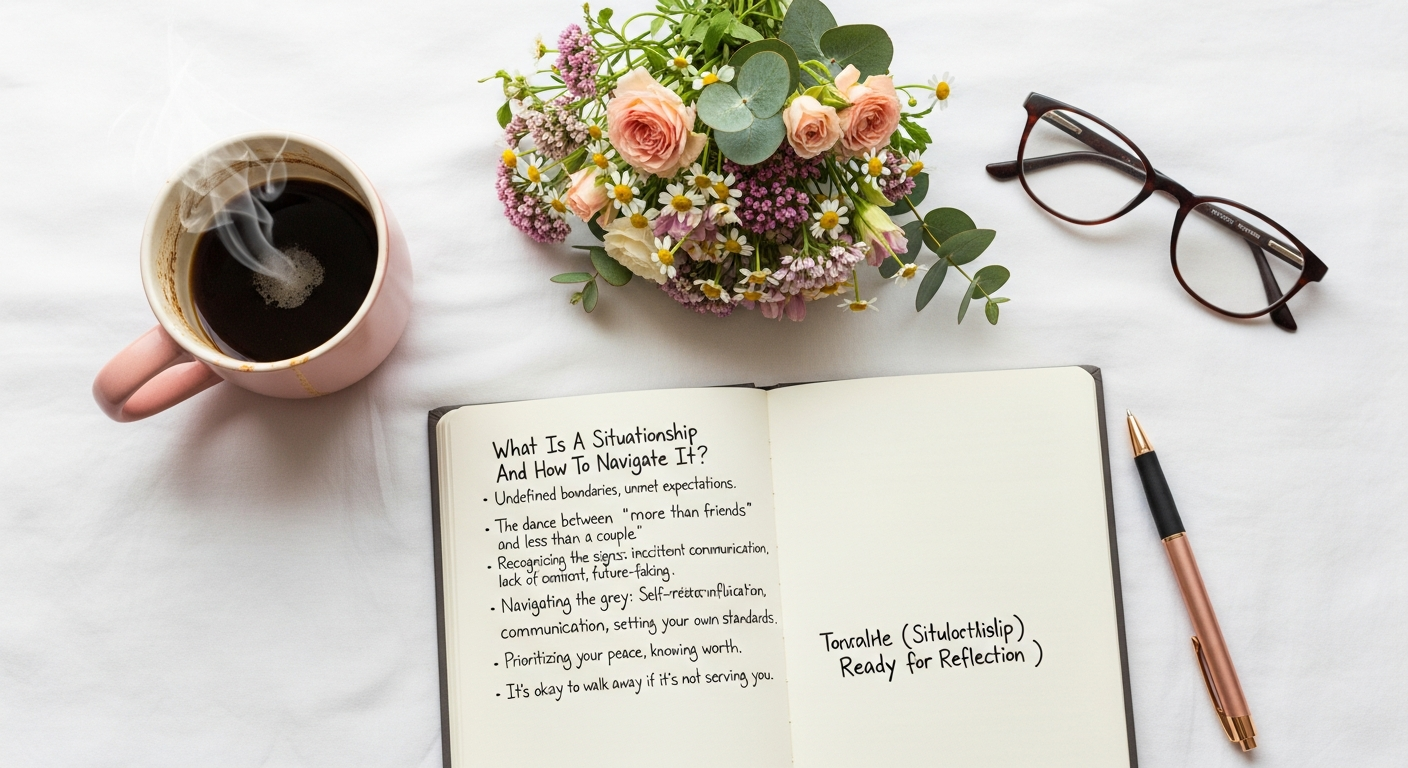 What Is A Situationship
And How To Navigate It?
• Undefined boundaries, unmet expectations.
• The dance between "more than friends"
and less than a couple"
• Recognizing the signs: communication,
lack of future-faking.
• Navigating the grey:
communication, setting your own standards.
• Prioritizing your peace, knowing worth.
• It's okay to walk away if it's not serving you.
Ready for Reflection )